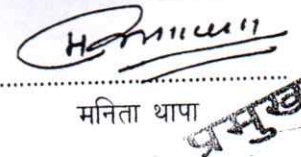 मनिता थापा
प्रमुख